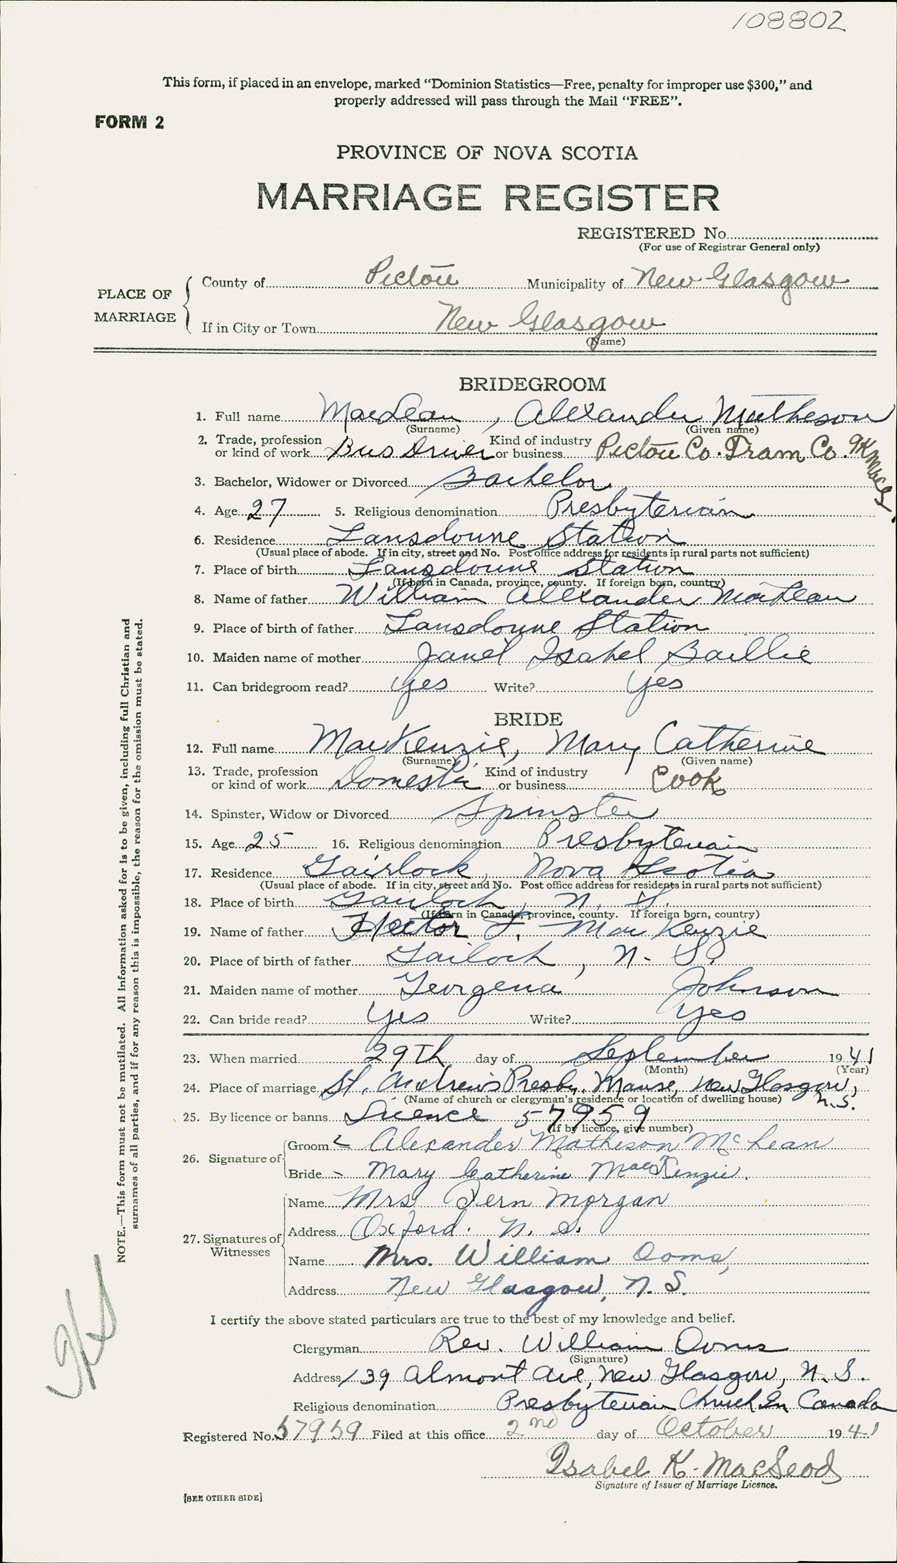 108802
This form, if placed in an envelope, marked “Dominion Statistics—Free, penalty for improper use $300,” and
properly addressed will pass through the Mail “FREE”.
FORM 2
PROVINCE OF NOVA SCOTIA
MARRIAGE REGISTER
REGISTERED No.
(For use of Registrar General only)
PLACE OF MARRIAGE
County of Pictou Municipality of New Glasgow
If in City or Town New Glasgow
(Name)
BRIDEGROOM
1. Full name MacLean, Alexander Matheson
(Surname) (Given name)
2. Trade, profession or kind of work Bus Driver Kind of industry or business Pictou Co. Tram Co.
3. Bachelor, Widower or Divorced Bachelor
4. Age 27 5. Religious denomination Presbyterian
6. Residence Lansdowne Station
(Usual place of abode. If in city, street and No. Post office address for residents in rural parts not sufficient)
7. Place of birth Lansdowne Station
(If born in Canada, province, county. If foreign born, country)
8. Name of father William Alexander MacLean
9. Place of birth of father Lansdowne Station
10. Maiden name of mother Janet Isabel Baillie
11. Can bridegroom read? Yes Write? Yes
BRIDE
12. Full name MacKenzie, Mary Catherine
(Surname) (Given name)
13. Trade, profession or kind of work Domestic Kind of industry or business Cook
14. Spinster, Widow or Divorced Spinster
15. Age 25 16. Religious denomination Presbyterian
17. Residence Gairlock, Nova Scotia
(Usual place of abode. If in city, street and No. Post office address for residents in rural parts not sufficient)
18. Place of birth Gairloch, N. S.
(If born in Canada, province, county. If foreign born, country)
19. Name of father Hector F. MacKenzie
20. Place of birth of father Gairloch, N. S.
21. Maiden name of mother Georgena Johnson
22. Can bride read? Yes Write? Yes
23. When married 29th day of September 1941
(Month) (Year)
24. Place of marriage St. Andrew's Presby. Manse, New Glasgow, N.S.
(Name of church or clergyman's residence or location of dwelling house)
25. By licence or banns Licence 57959
(If by licence, give number)
26. Signature of Groom Alexander Matheson McLean
Bride Mary Catherine MacKenzie.
27. Signatures of Witnesses
Name Mrs Fern Morgan
Address Oxford. N. S.
Name Mrs. William Ooms,
Address New Glasgow, N. S.
I certify the above stated particulars are true to the best of my knowledge and belief.
Clergyman Rev. William Ooms
(Signature)
Address 139 Almont Ave, New Glasgow, N. S.
Religious denomination Presbyterian Church In Canada
Registered No. 57959 Filed at this office 2nd day of October 1941
Isabel K. MacLeod
Signature of Issuer of Marriage Licence.
[SEE OTHER SIDE]
NOTE.—This form must not be mutilated. All information asked for is to be given, including full Christian and
surnames of all parties, and if for any reason this is impossible, the reason for the omission must be stated.